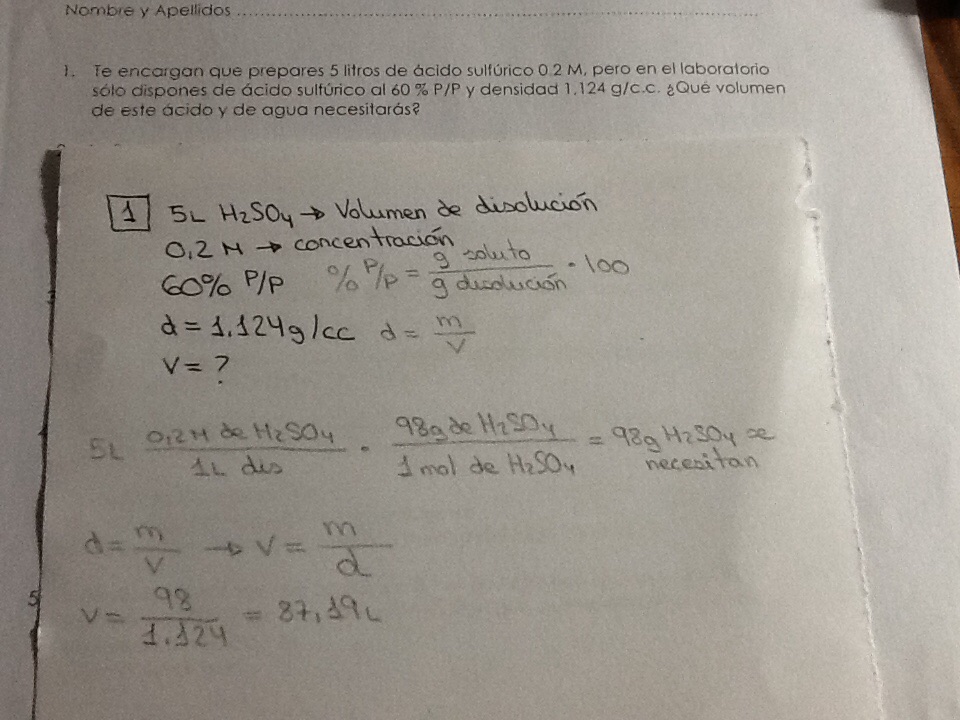 Nombre y Apellidos ...............................................................
1. Te encargan que prepares 5 litros de ácido sulfúrico 0.2 M, pero en el laboratorio
sólo dispones de ácido sulfúrico al 60 % P/P y densidad 1.124 g/c.c. ¿Qué volumen
de este ácido y de agua necesitarás?
1 5L H₂SO₄ → Volumen de disolución
0,2 M → concentración
60% P/P % P/P = g soluto / g disolución · 100
d = 1.124g/cc d = m / V
V = ?
5L 0,2M de H₂SO₄ / 1L dis · 98g de H₂SO₄ / 1 mol de H₂SO₄ = 98g H₂SO₄ se
necesitan
d = m / V → V = m / d
5
V = 98 / 1.124 = 87,19L